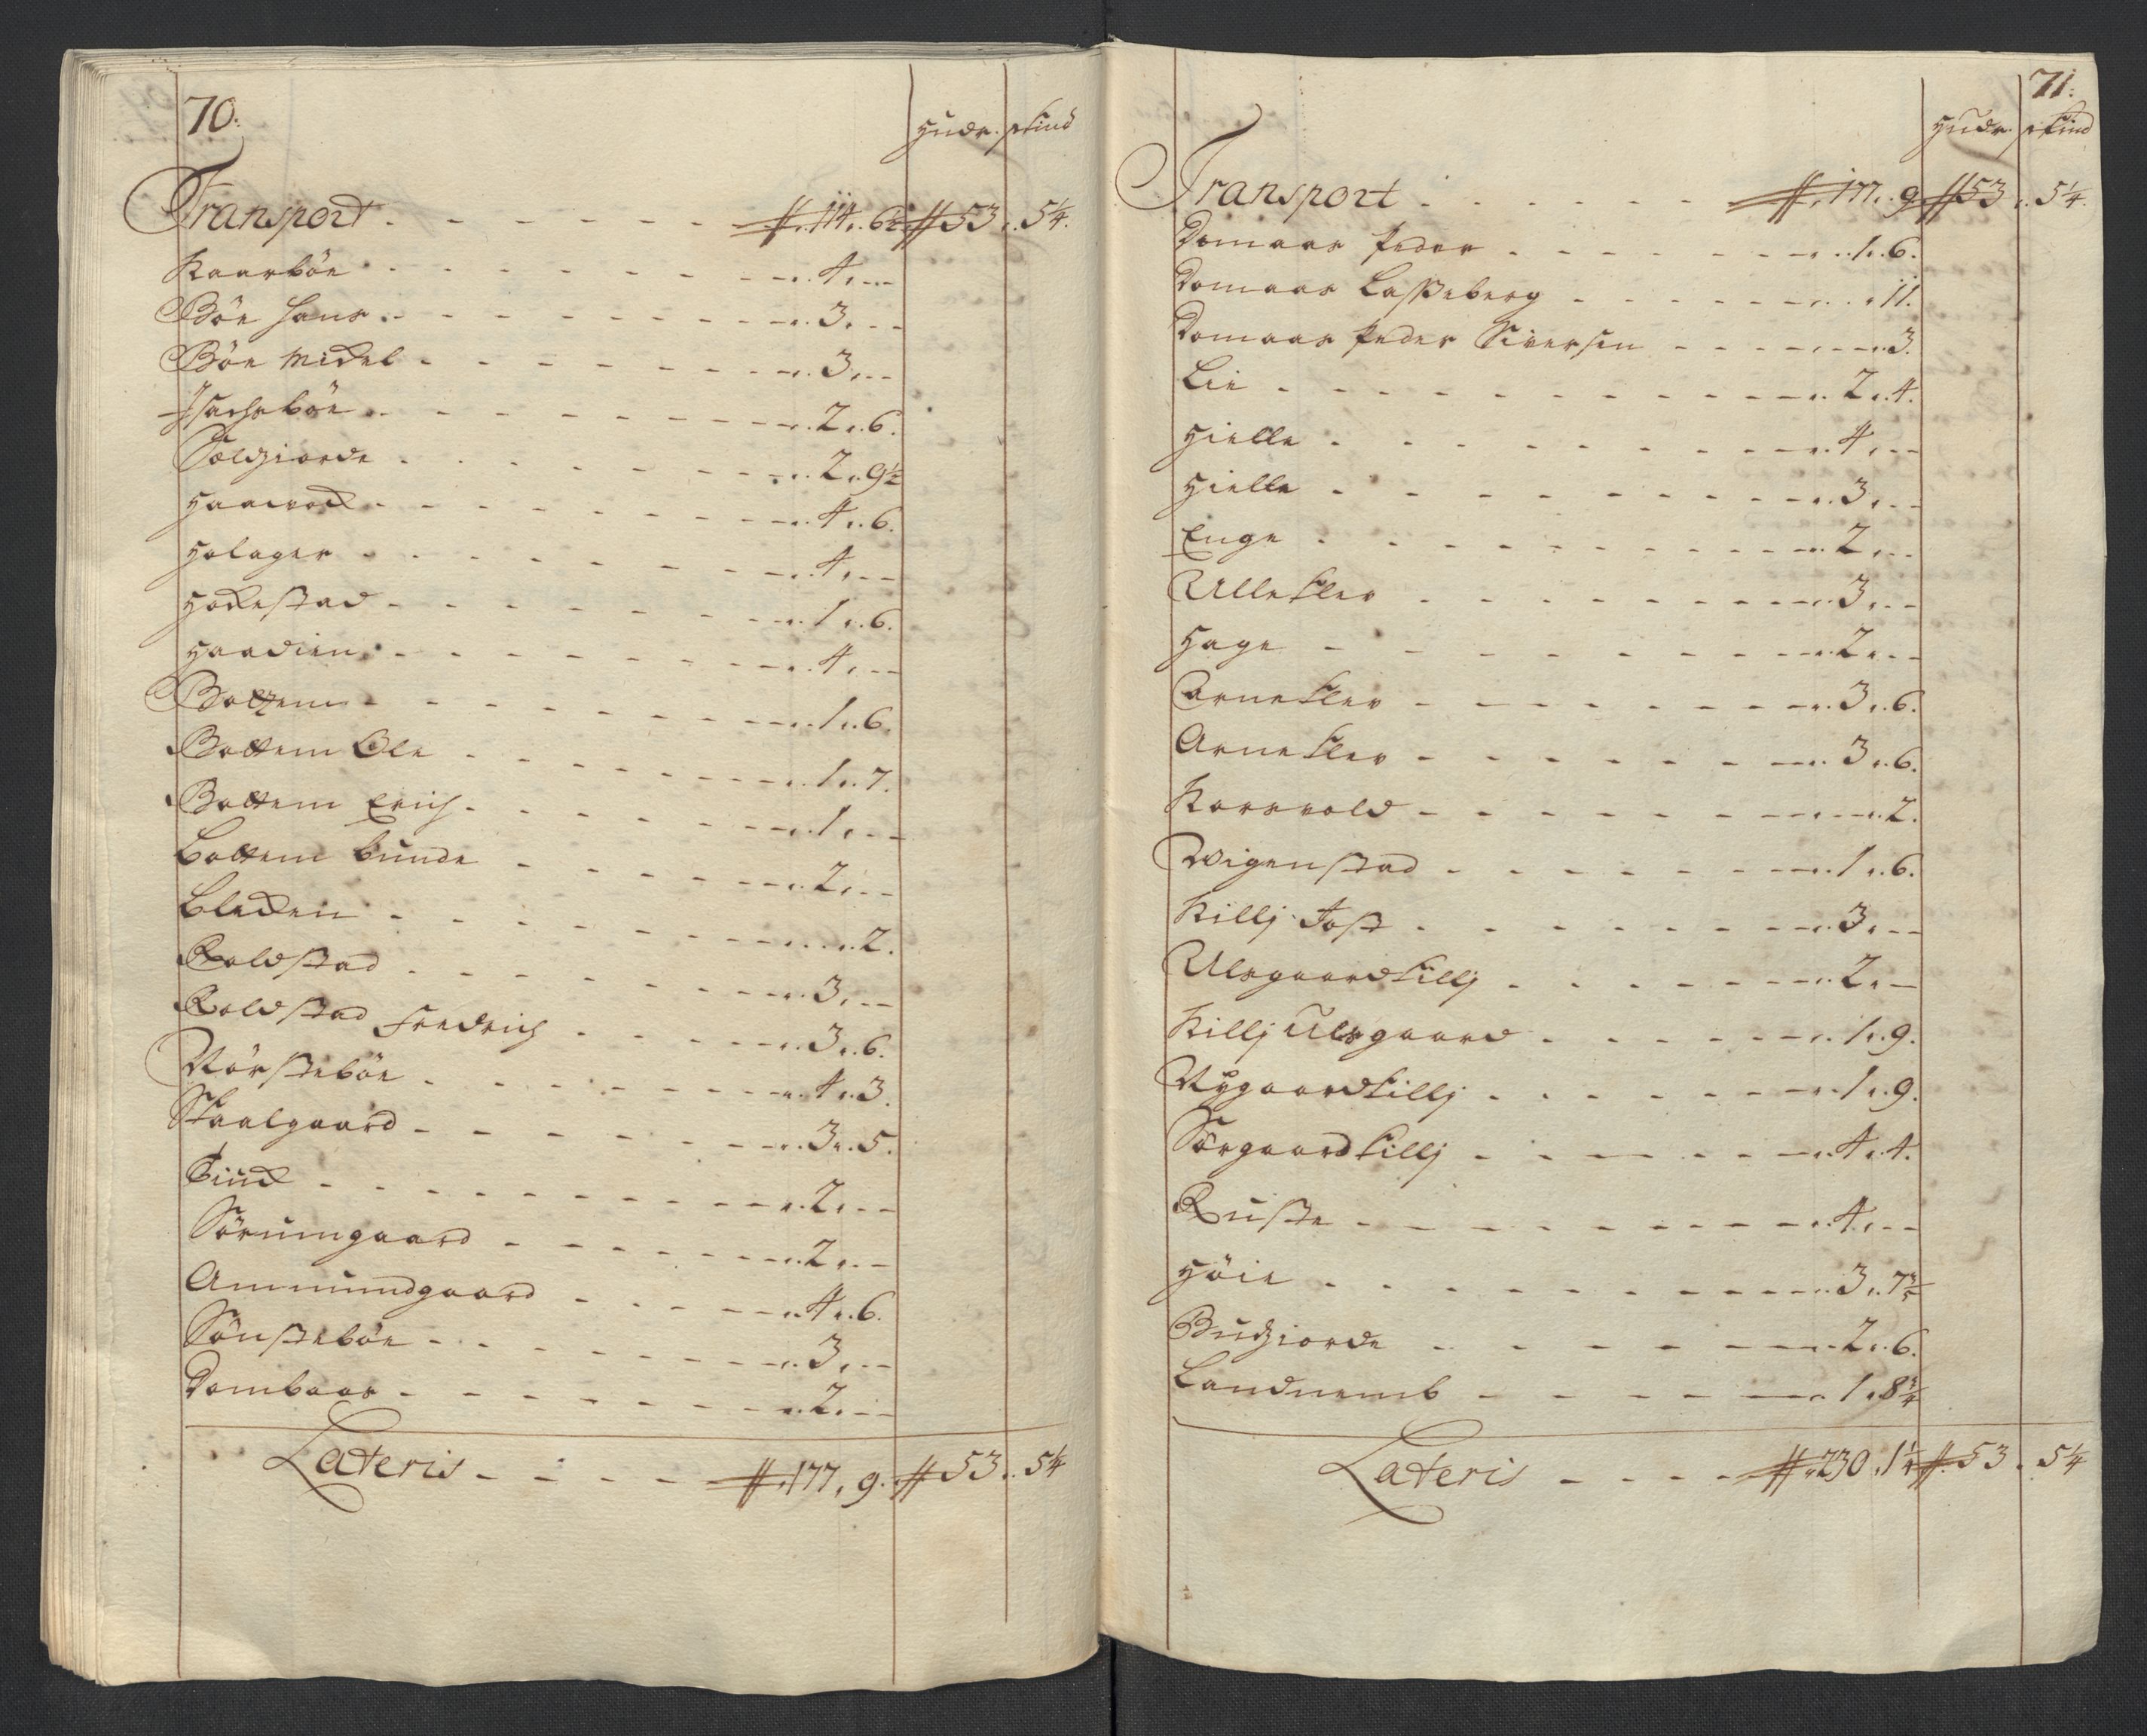 70.
Hudr. skind
Transport . . . . . . ƒƒ. 114. 6½ ƒƒ 53. 5¼.
Kaarböe . . . . . . 4. --
Böe Hans . . . . . . 3. --
Böe Mickel . . . . . . 3. --
Isachsböe . . . . . . 2. 6.
Selgiorde . . . . . . 2. 9½
Haarrod . . . . . . 4. 6.
Holager . . . . . . 4. --
Hockestad . . . . . . 1. 6.
Haadien . . . . . . 4. --
Bottem . . . . . . 1. 6.
Bottem Ole . . . . . . 1. 7.
Bottem Erich . . . . . . 1. --
Bottem bunde . . . . . . 2. --
Blecken . . . . . . 2.
Roldstad . . . . . . 3. --
Roldstad Fredrich . . . . . . 3. 6.
Nörsteböe . . . . . . 4. 3.
Skaalgaard . . . . . . 3. 5.
. . . . . . 2. --
Sörumgaard . . . . . . 2. --
Ammundgaard . . . . . . 4. 6.
Sönsteböe . . . . . . 3. --
Dombaas . . . . . . 2. --
Lateris . . . . ƒƒ. 177. 9. ƒƒ 53. 5¼
71.
Hudr. skind
Transport . . . . . . ƒƒ. 177. 9 ƒƒ 53. 5¼.
Domaas Peder . . . . . . 1. 6.
Domaas Lasseberg . . . . . . 11.
Domaas Peder Siversen . . . . . . 3.
Lie . . . . . . 2. 4.
Hielle . . . . . . 4. --
Hielle . . . . . . 3. --
Enge . . . . . . 2. --
Ullekler . . . . . . 3. --
Hage . . . . . . 2. --
Arnekler . . . . . . 3. 6.
Arnekler . . . . . . 3. 6.
Korsvold . . . . . . 2.
Wigenstad . . . . . . 1. 6.
Killj Jost . . . . . . 3. --
Ulsgaardkillj . . . . . . 2. --
Killj Ulsgaard . . . . . . 1. 9.
Nygaardkillj . . . . . . 1. 9.
Sörgaardkillj . . . . . . 4. 4.
Ruste . . . . . . 4. --
Höie . . . . . . 3. 7½
Budgiorde . . . . . . 2. 6.
Landnemb . . . . . . 1. 8¾
Lateris . . . . ƒƒ. 230. 1¼ ƒƒ. 53. 5¼